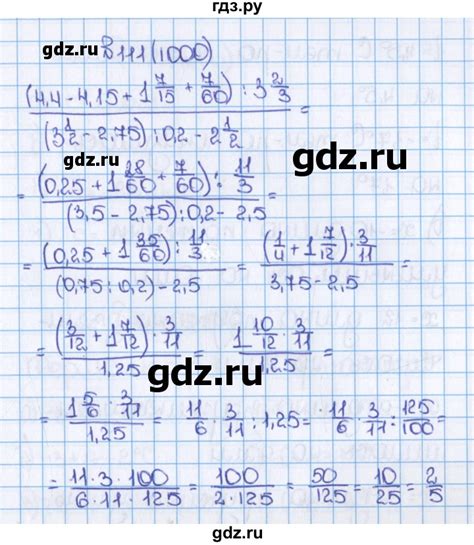 гдз.ру
gdz.ru
gdz.ru
№ 1111(1000)
(4,4 - 4,15 + 1 7/15 + 7/60) : 3 2/3 / (3 1/2 - 2,75) : 0,2 - 2 1/2 =
gdz.ru
= (0,25 + 1 28/60 + 7/60) : 11/3 / (3,5 - 2,75) : 0,2 - 2,5 =
= (0,25 + 1 35/60) : 11/3 / (0,75 : 0,2) - 2,5 = (1/4 + 1 7/12) · 3/11 / 3,75 - 2,5 =
= (3/12 + 1 7/12) · 3/11 / 1,25 = 1 10/12 · 3/11 / 1,25 =
gdz.ru
= 1 5/6 · 3/11 / 1,25 = 11/6 · 3/11 : 1,25 = 11/6 · 3/11 : 125/100 =
= 11·3·100 / 6·11·125 = 100 / 2·125 = 50/125 = 10/25 = 2/5
gdz.ru
gdz.ru